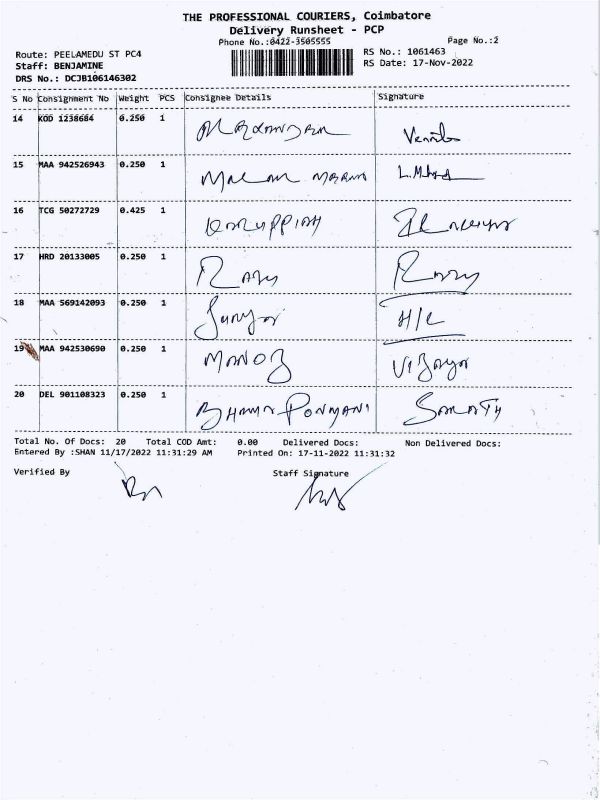 THE PROFESSIONAL COURIERS, Coimbatore
Delivery Runsheet - PCP
Phone No.:0422-3505555 Page No.:2
Route: PEELAMEDU ST PC4 RS No.: 1061463
Staff: BENJAMINE RS Date: 17-Nov-2022
DRS No.: DCJB106146302
S No Consignment No Weight PCS Consignee Details Signature
14 KOD 1238684 0.250 1
15 MAA 942526943 0.250 1
16 TCG 50272729 0.425 1 KARUPPIAH
17 HRD 20133005 0.250 1
18 MAA 569142093 0.250 1 H/C
19 MAA 942530690 0.250 1 MANOJ Vijaya
20 DEL 901108323 0.250 1 PONMANI SARATH
Total No. Of Docs: 20 Total COD Amt: 0.00 Delivered Docs: Non Delivered Docs:
Entered By :SHAN 11/17/2022 11:31:29 AM Printed On: 17-11-2022 11:31:32
Verified By Staff Signature